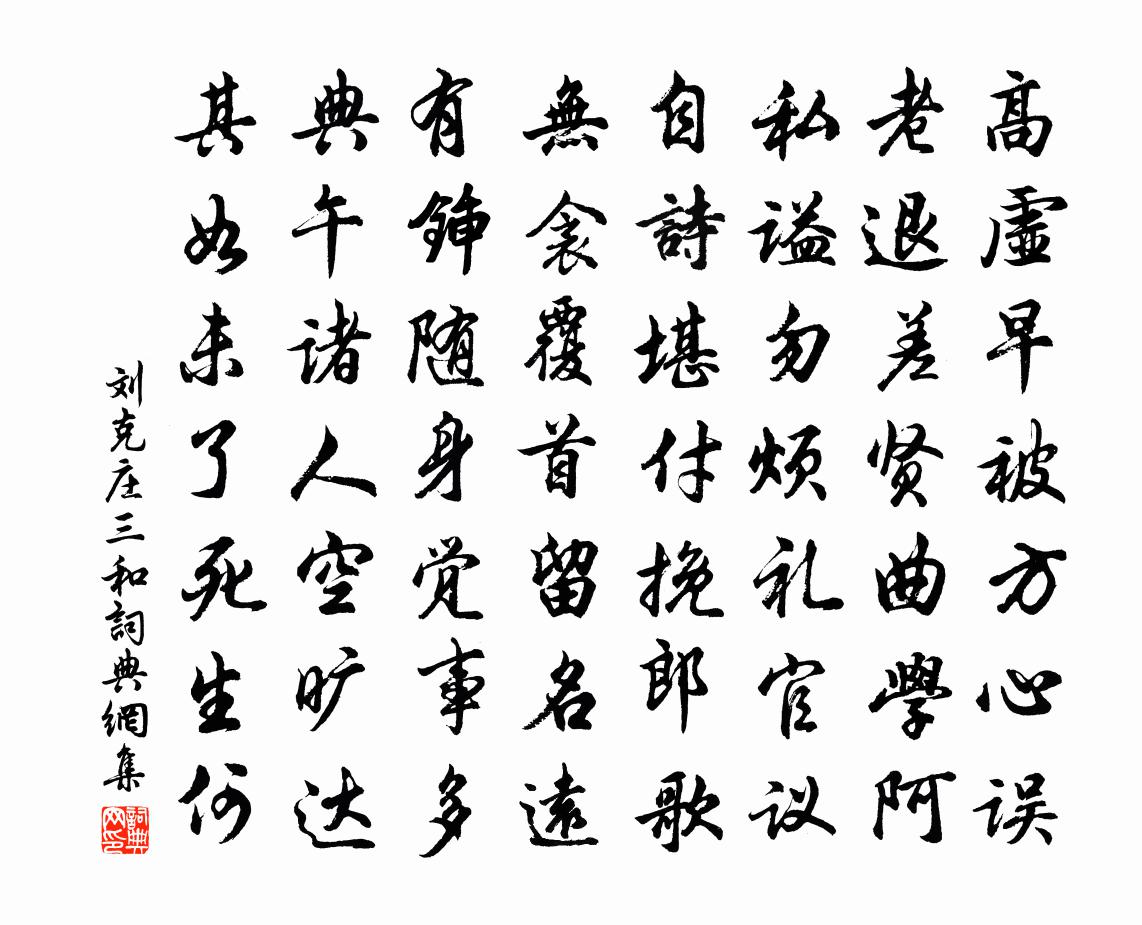 高虛早被方心误
老退差贤曲學阿
私谥勿烦礼官议
自詩堪付挽郎歌
無衾覆首留名遠
有鍤随身觉事多
典午诸人空旷达
其如未了死生何
刘克庄三和詞典網集
詞典网印